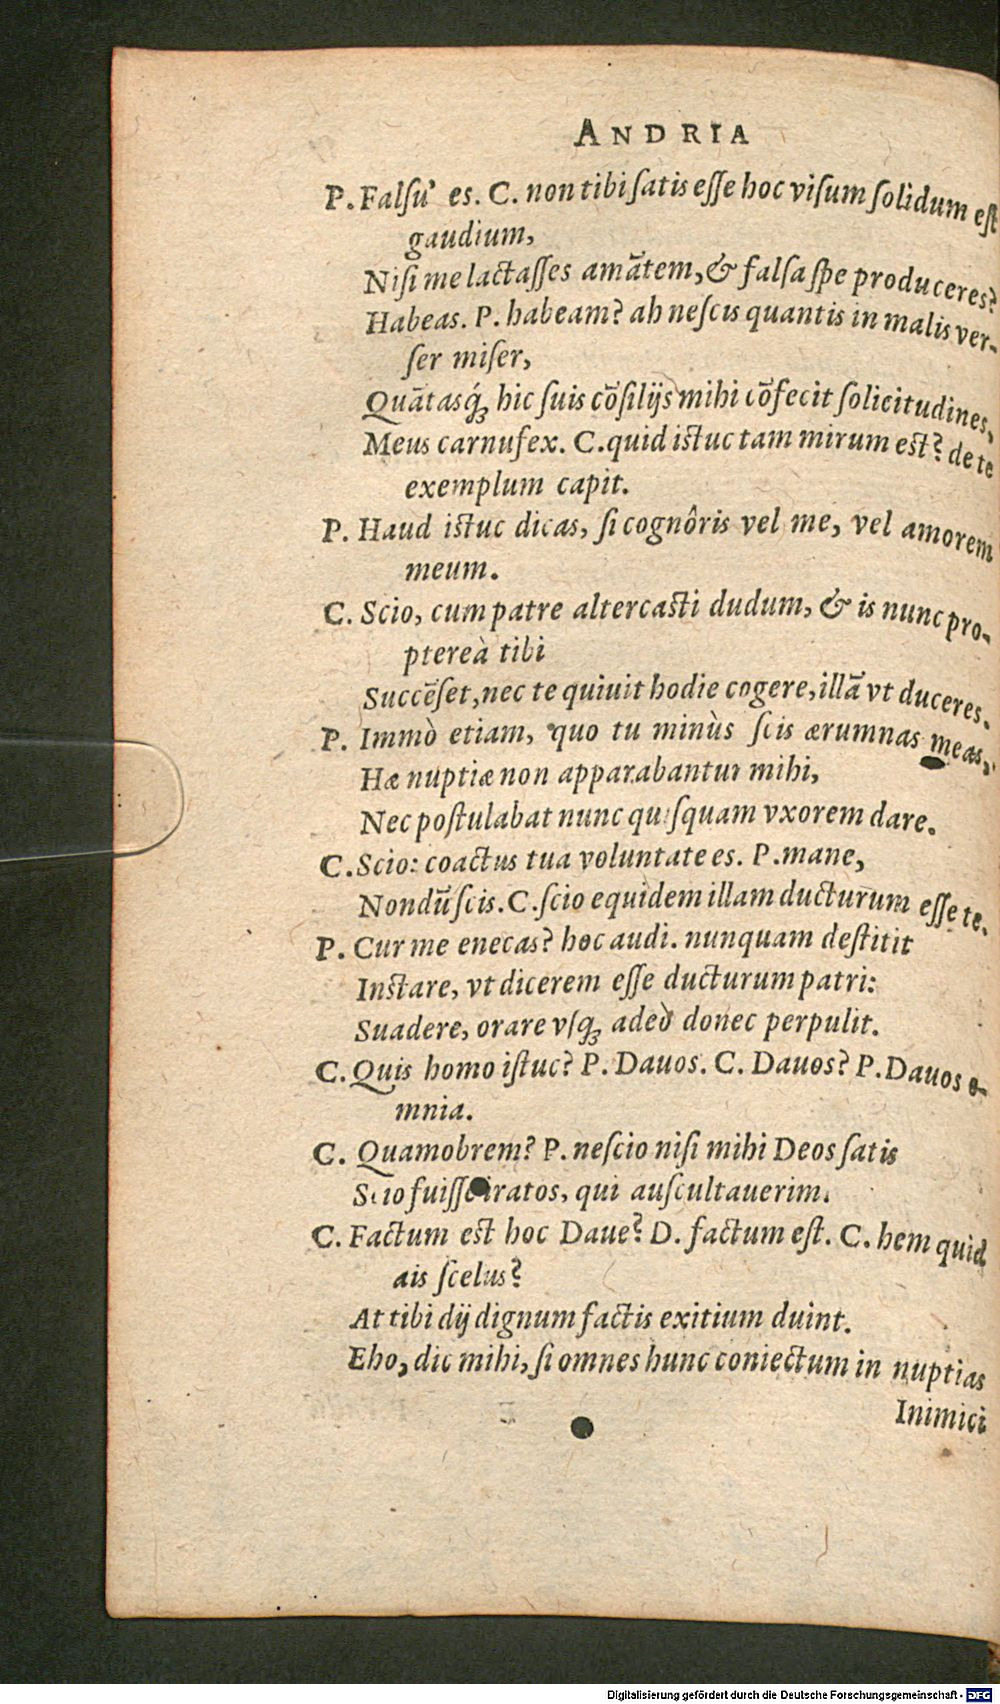 ANDRIA
P. Falſu' es. C. non tibi ſatis eſſe hoc viſum ſolidum eſt
gaudium,
Niſi me lactaſſes amātem, & falſa ſpe produceres?
Habeas. P. habeam? ah neſcis quantis in malis ver-
ſer miſer,
Quātasq́; hic ſuis cōſilijs mihi cōfecit ſolicitudines,
Meus carnufex. C. quid iſtuc tam mirum eſt? de te
exemplum capit.
P. Haud iſtuc dicas, ſi cognôris vel me, vel amorem
meum.
C. Scio, cum patre altercaſti dudum, & is nunc pro-
ptereà tibi
Succēſet, nec te quiuit hodie cogere, illā vt duceres.
P. Immò etiam, quo tu minùs ſcis ærumnas meas,
Hæ nuptiæ non apparabantur mihi,
Nec poſtulabat nunc quiſquam vxorem dare.
C. Scio: coactus tua voluntate es. P. mane,
Nondū ſcis. C. ſcio equidem illam ducturum eſſe te.
P. Cur me enecas? hoc audi. nunquam deſtitit
Inſtare, vt dicerem eſſe ducturum patri:
Suadere, orare vſq; adeò donec perpulit.
C. Quis homo iſtuc? P. Dauos. C. Dauos? P. Dauos o-
mnia.
C. Quamobrem? P. neſcio niſi mihi Deos ſatis
Scio fuiſſe iratos, qui auſcultauerim.
C. Factum eſt hoc Daue? D. factum eſt. C. hem quid
ais ſcelus?
At tibi dij dignum factis exitium duint.
Eho, dic mihi, ſi omnes hunc coniectum in nuptias
Inimici
Digitalisierung gefördert durch die Deutsche Forschungsgemeinschaft - DFG